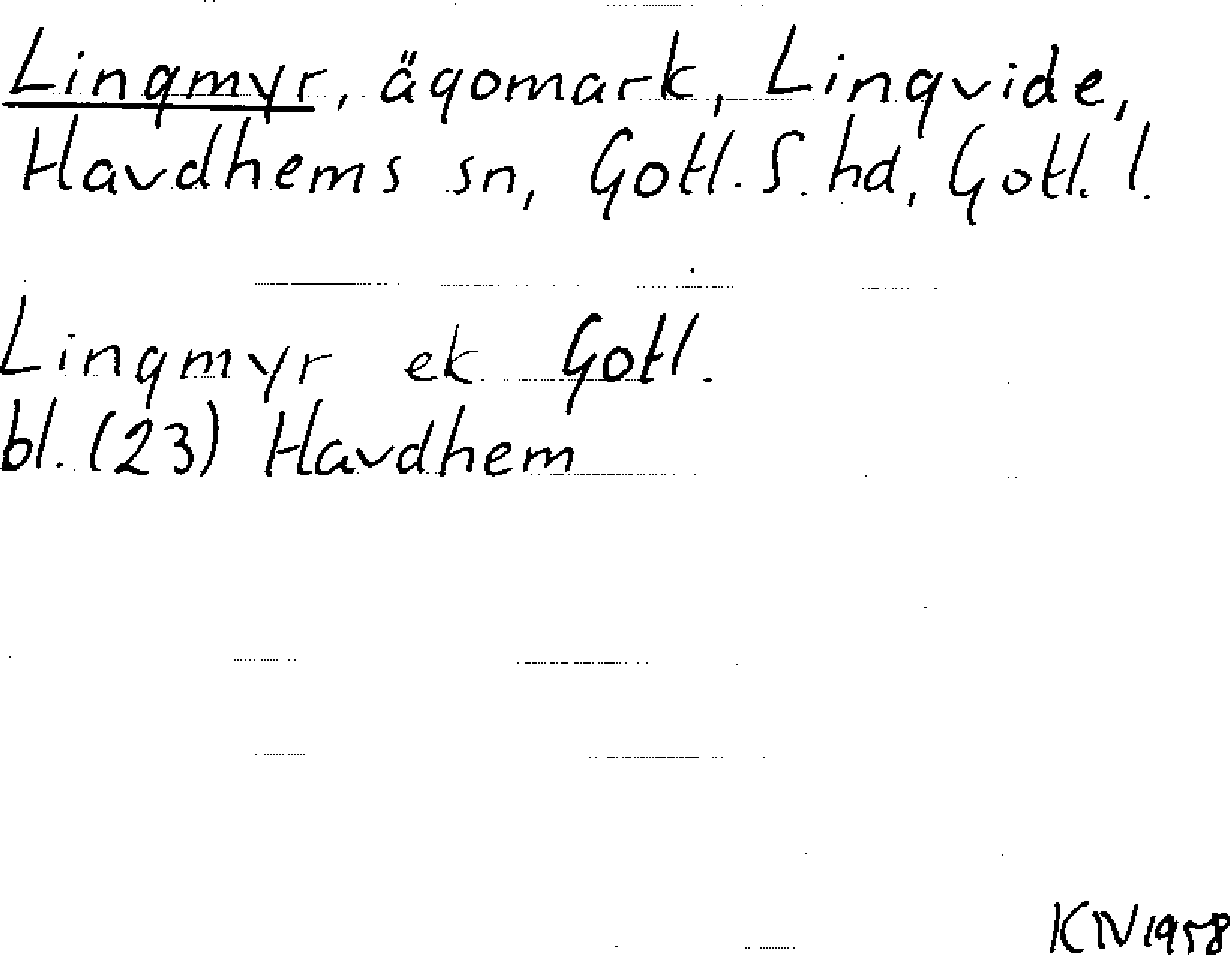 Lingmyr, ägomark, Lingvide,
Havdhems sn, Gotl. S. hd, Gotl. l.
Lingmyr ek Gotl.
bl. (23) Havdhem
KN 1958